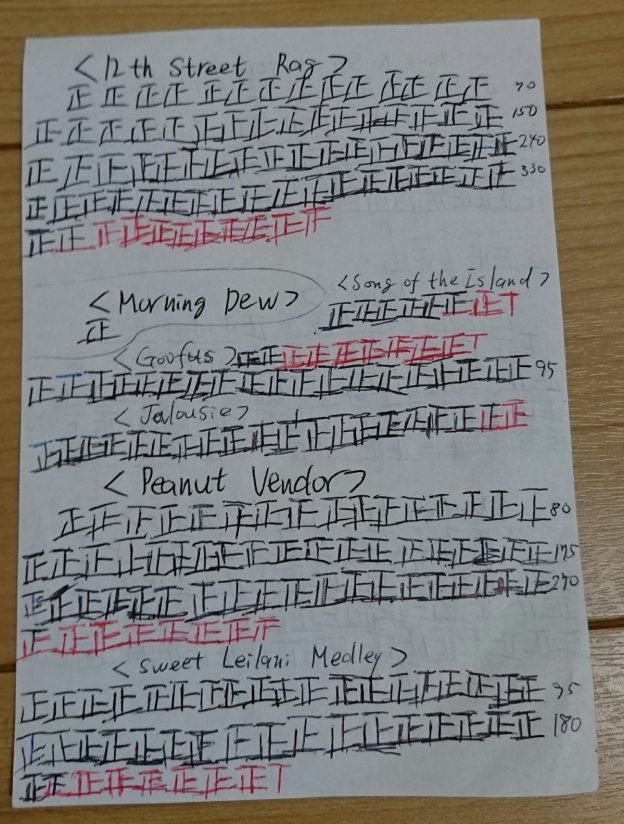 <12th Street Rag>
正正正正正正正正正正正正正正 70
正正正正正正正正正正正正正正正正 150
正正正正正正正正正正正正正正正正正正 240
正正正正正正正正正正正正正正正正正正 330
正正正正正正正正正正下
<Song of the Island>
正正正正正正正T
<Morning Dew>
正
<Goofus> 正正正正正正正正正T
正正正正正正正正正正正正正正正正正正正 95
<Jalousie>
正正正正正正正正正正正正正正正正正正正正
<Peanut Vendor>
正正正正正正正正正正正正正正正正 80
正正正正正正正正正正正正正正正正正正正 175
正正正正正正正正正正正正正正正正正正正 270
正正正正正正正下
<Sweet Leilani Medley>
正正正正正正正正正正正正正正正正正正正 95
正正正正正正正正正正正正正正正正正 180
正正正正正正正正T